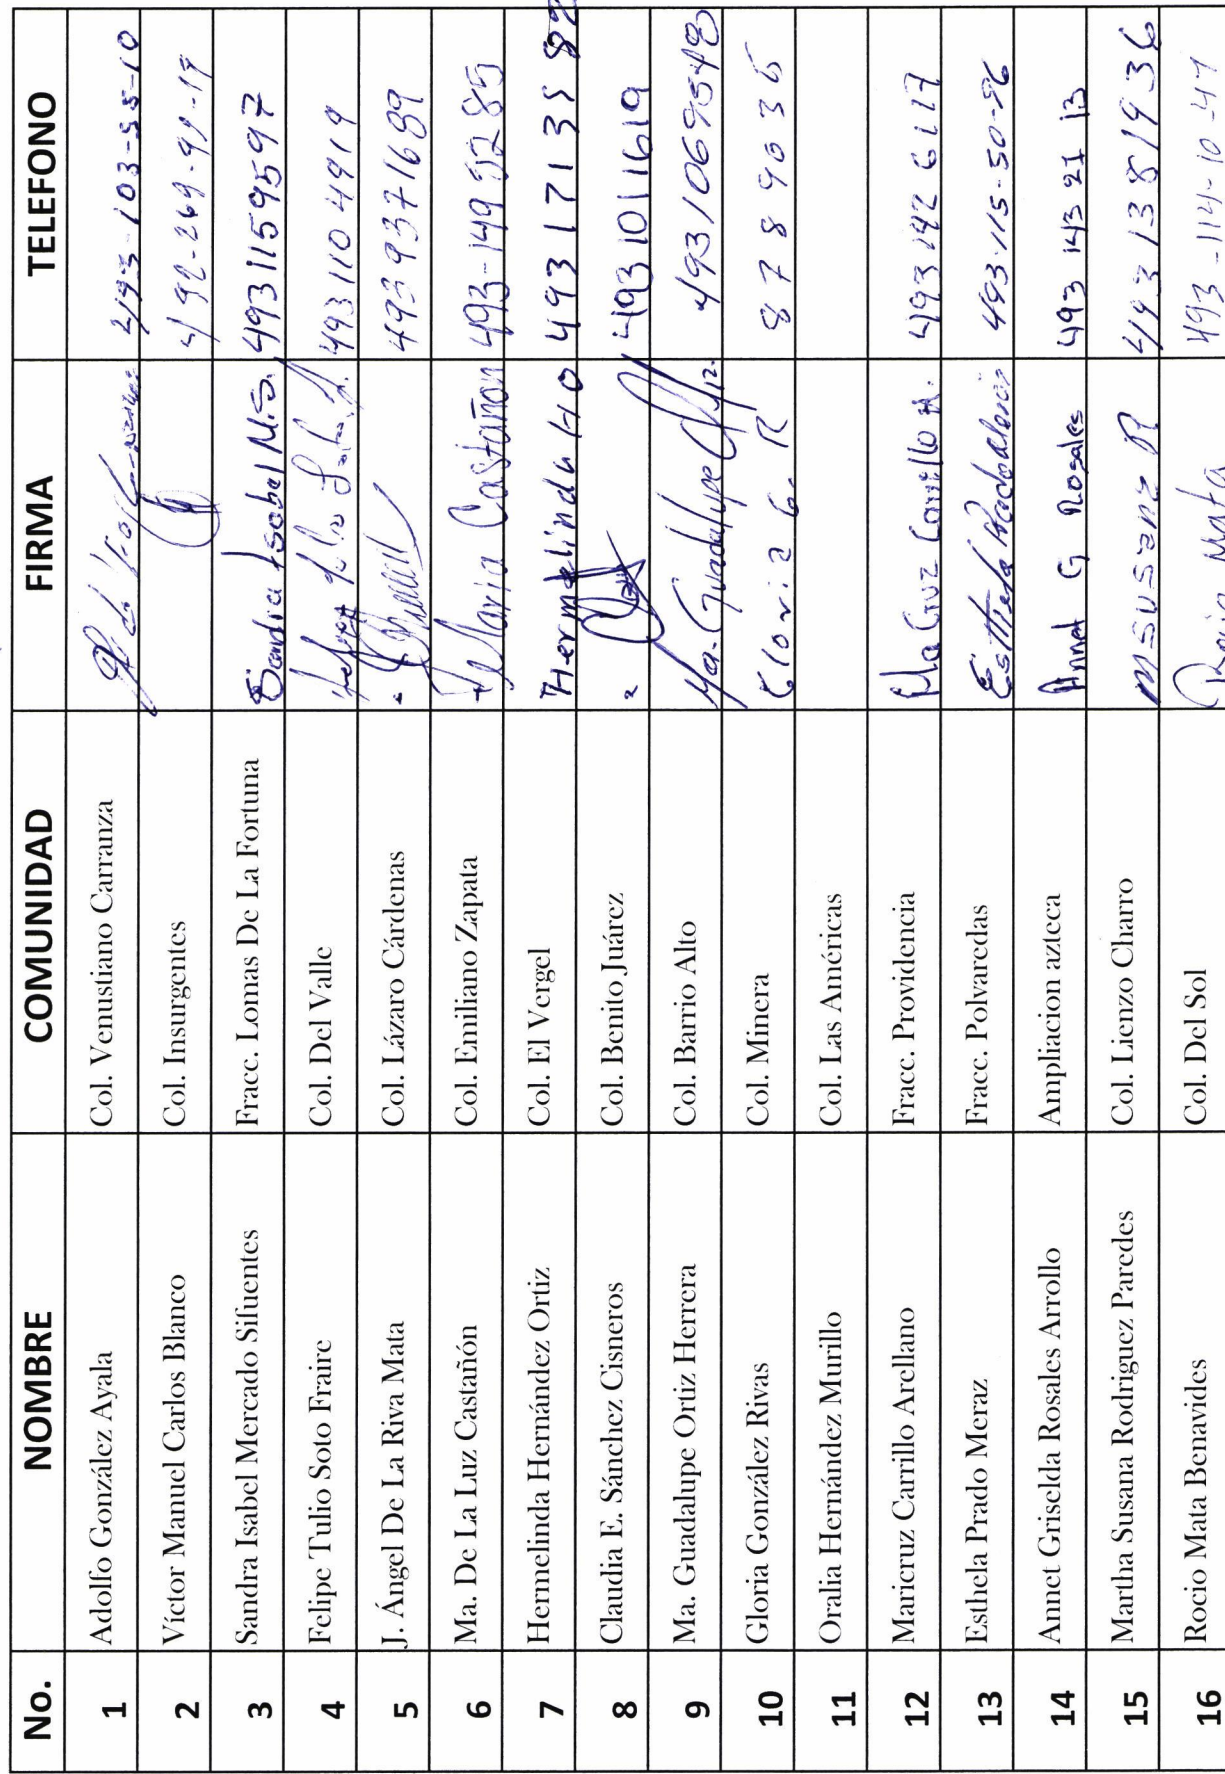 No. NOMBRE COMUNIDAD FIRMA TELEFONO
1 Adolfo González Ayala Col. Venustiano Carranza 493-103-55-10
2 Víctor Manuel Carlos Blanco Col. Insurgentes 492-269-99-19
3 Sandra Isabel Mercado Sifuentes Fracc. Lomas De La Fortuna Sandra Isabel M.S. 4931159597
4 Felipe Tulio Soto Fraire Col. Del Valle 4931104919
5 J. Ángel De La Riva Mata Col. Lázaro Cárdenas 4939371689
6 Ma. De La Luz Castañón Col. Emiliano Zapata Maria Castañon 493-1495285
7 Hermelinda Hernández Ortiz Col. El Vergel Hermelinda H O
8 Claudia E. Sánchez Cisneros Col. Benito Juárez 4931011619
9 Ma. Guadalupe Ortiz Herrera Col. Barrio Alto Ma. Guadalupe
10 Gloria González Rivas Col. Minera Gloria G. R 8789035
11 Oralia Hernández Murillo Col. Las Américas
12 Maricruz Carrillo Arellano Fracc. Providencia Ma Cruz Carrillo A. 493 142 6117
13 Esthela Prado Meraz Fracc. Polvaredas Esthela 493-115-50-96
14 Annet Griselda Rosales Arrollo Ampliacion azteca Annet G Rosales 493 143 21 13
15 Martha Susana Rodriguez Paredes Col. Lienzo Charro M Susana R 493 1381936
16 Rocio Mata Benavides Col. Del Sol Rocio Mata 493-114-10-47